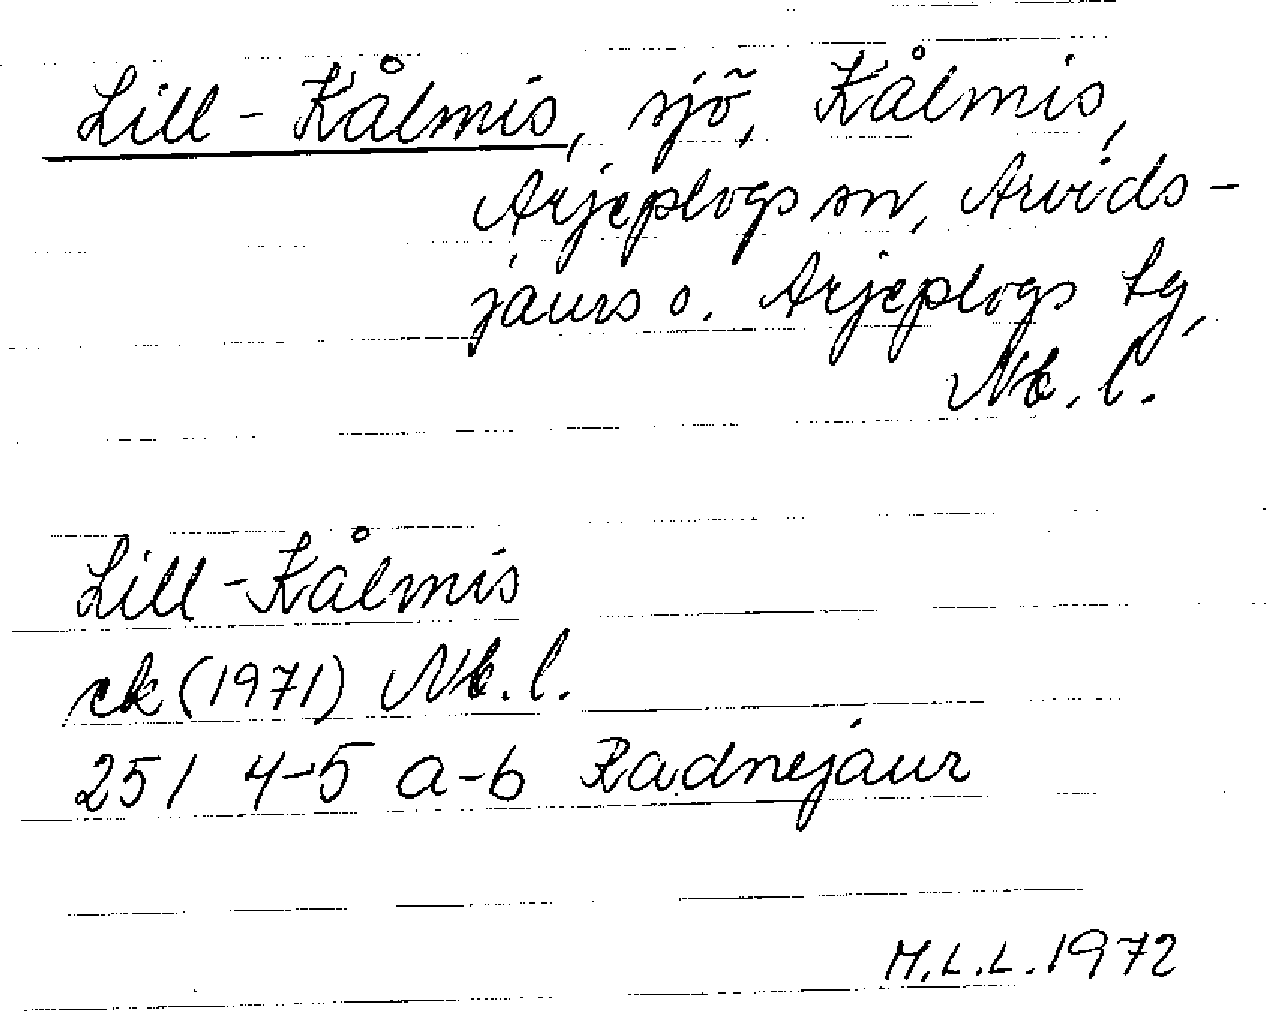 Lill-Kålmis, sjö, Kålmis,
Arjeplogs sn, Arvids-
jaurs o. Arjeplogs tg,
Nb. l.
Lill-Kålmis
ek (1971) Nb. l.
25 I 4-5 a-b Radnejaur
M.L.L. 1972